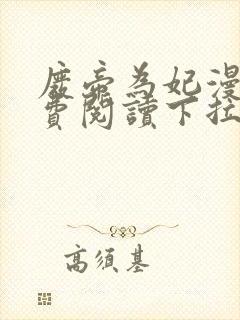 廢帝為妃漫
費閱讀下拉
高須基